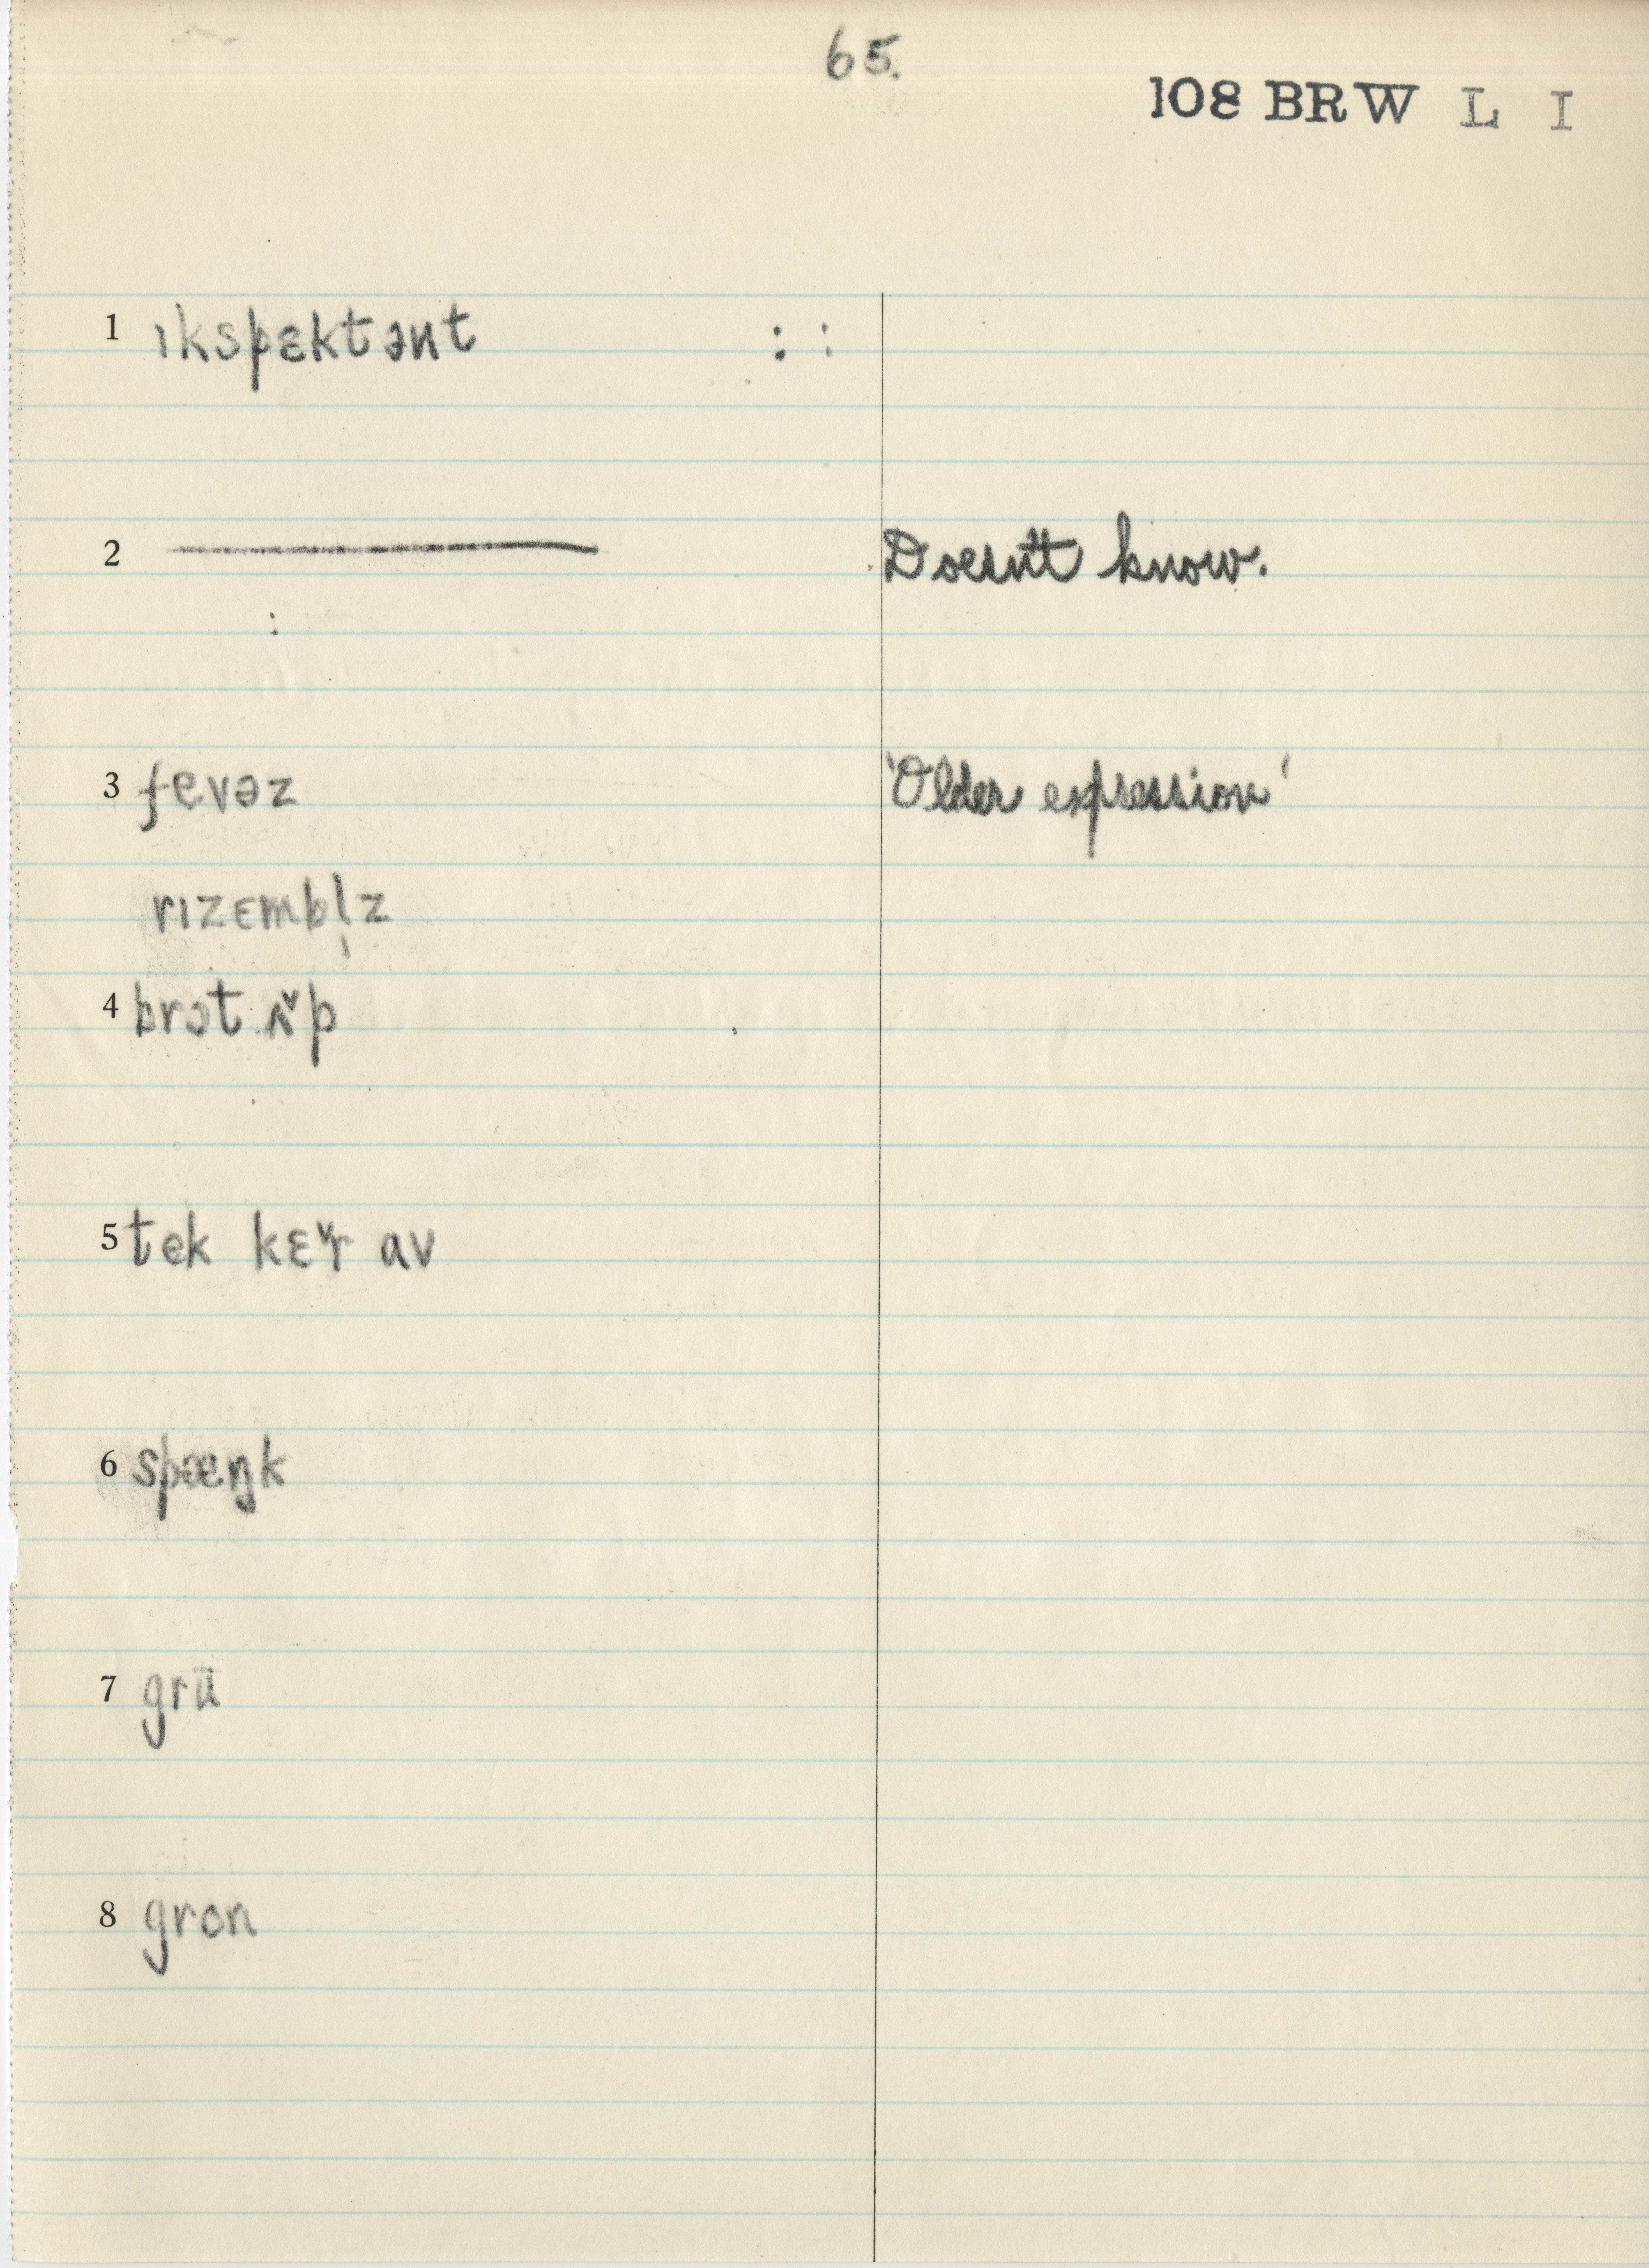 65.
108 BRW L I
1 ɪkspɛktənt : :
2 ——— Doesn't know.
3 fevəz 'Older expression'
rɪzɛmbl̩z
4 brɔt ʌ̌p
5 tek kɛɚ̌ av
6 spæŋk
7 grü
8 gron